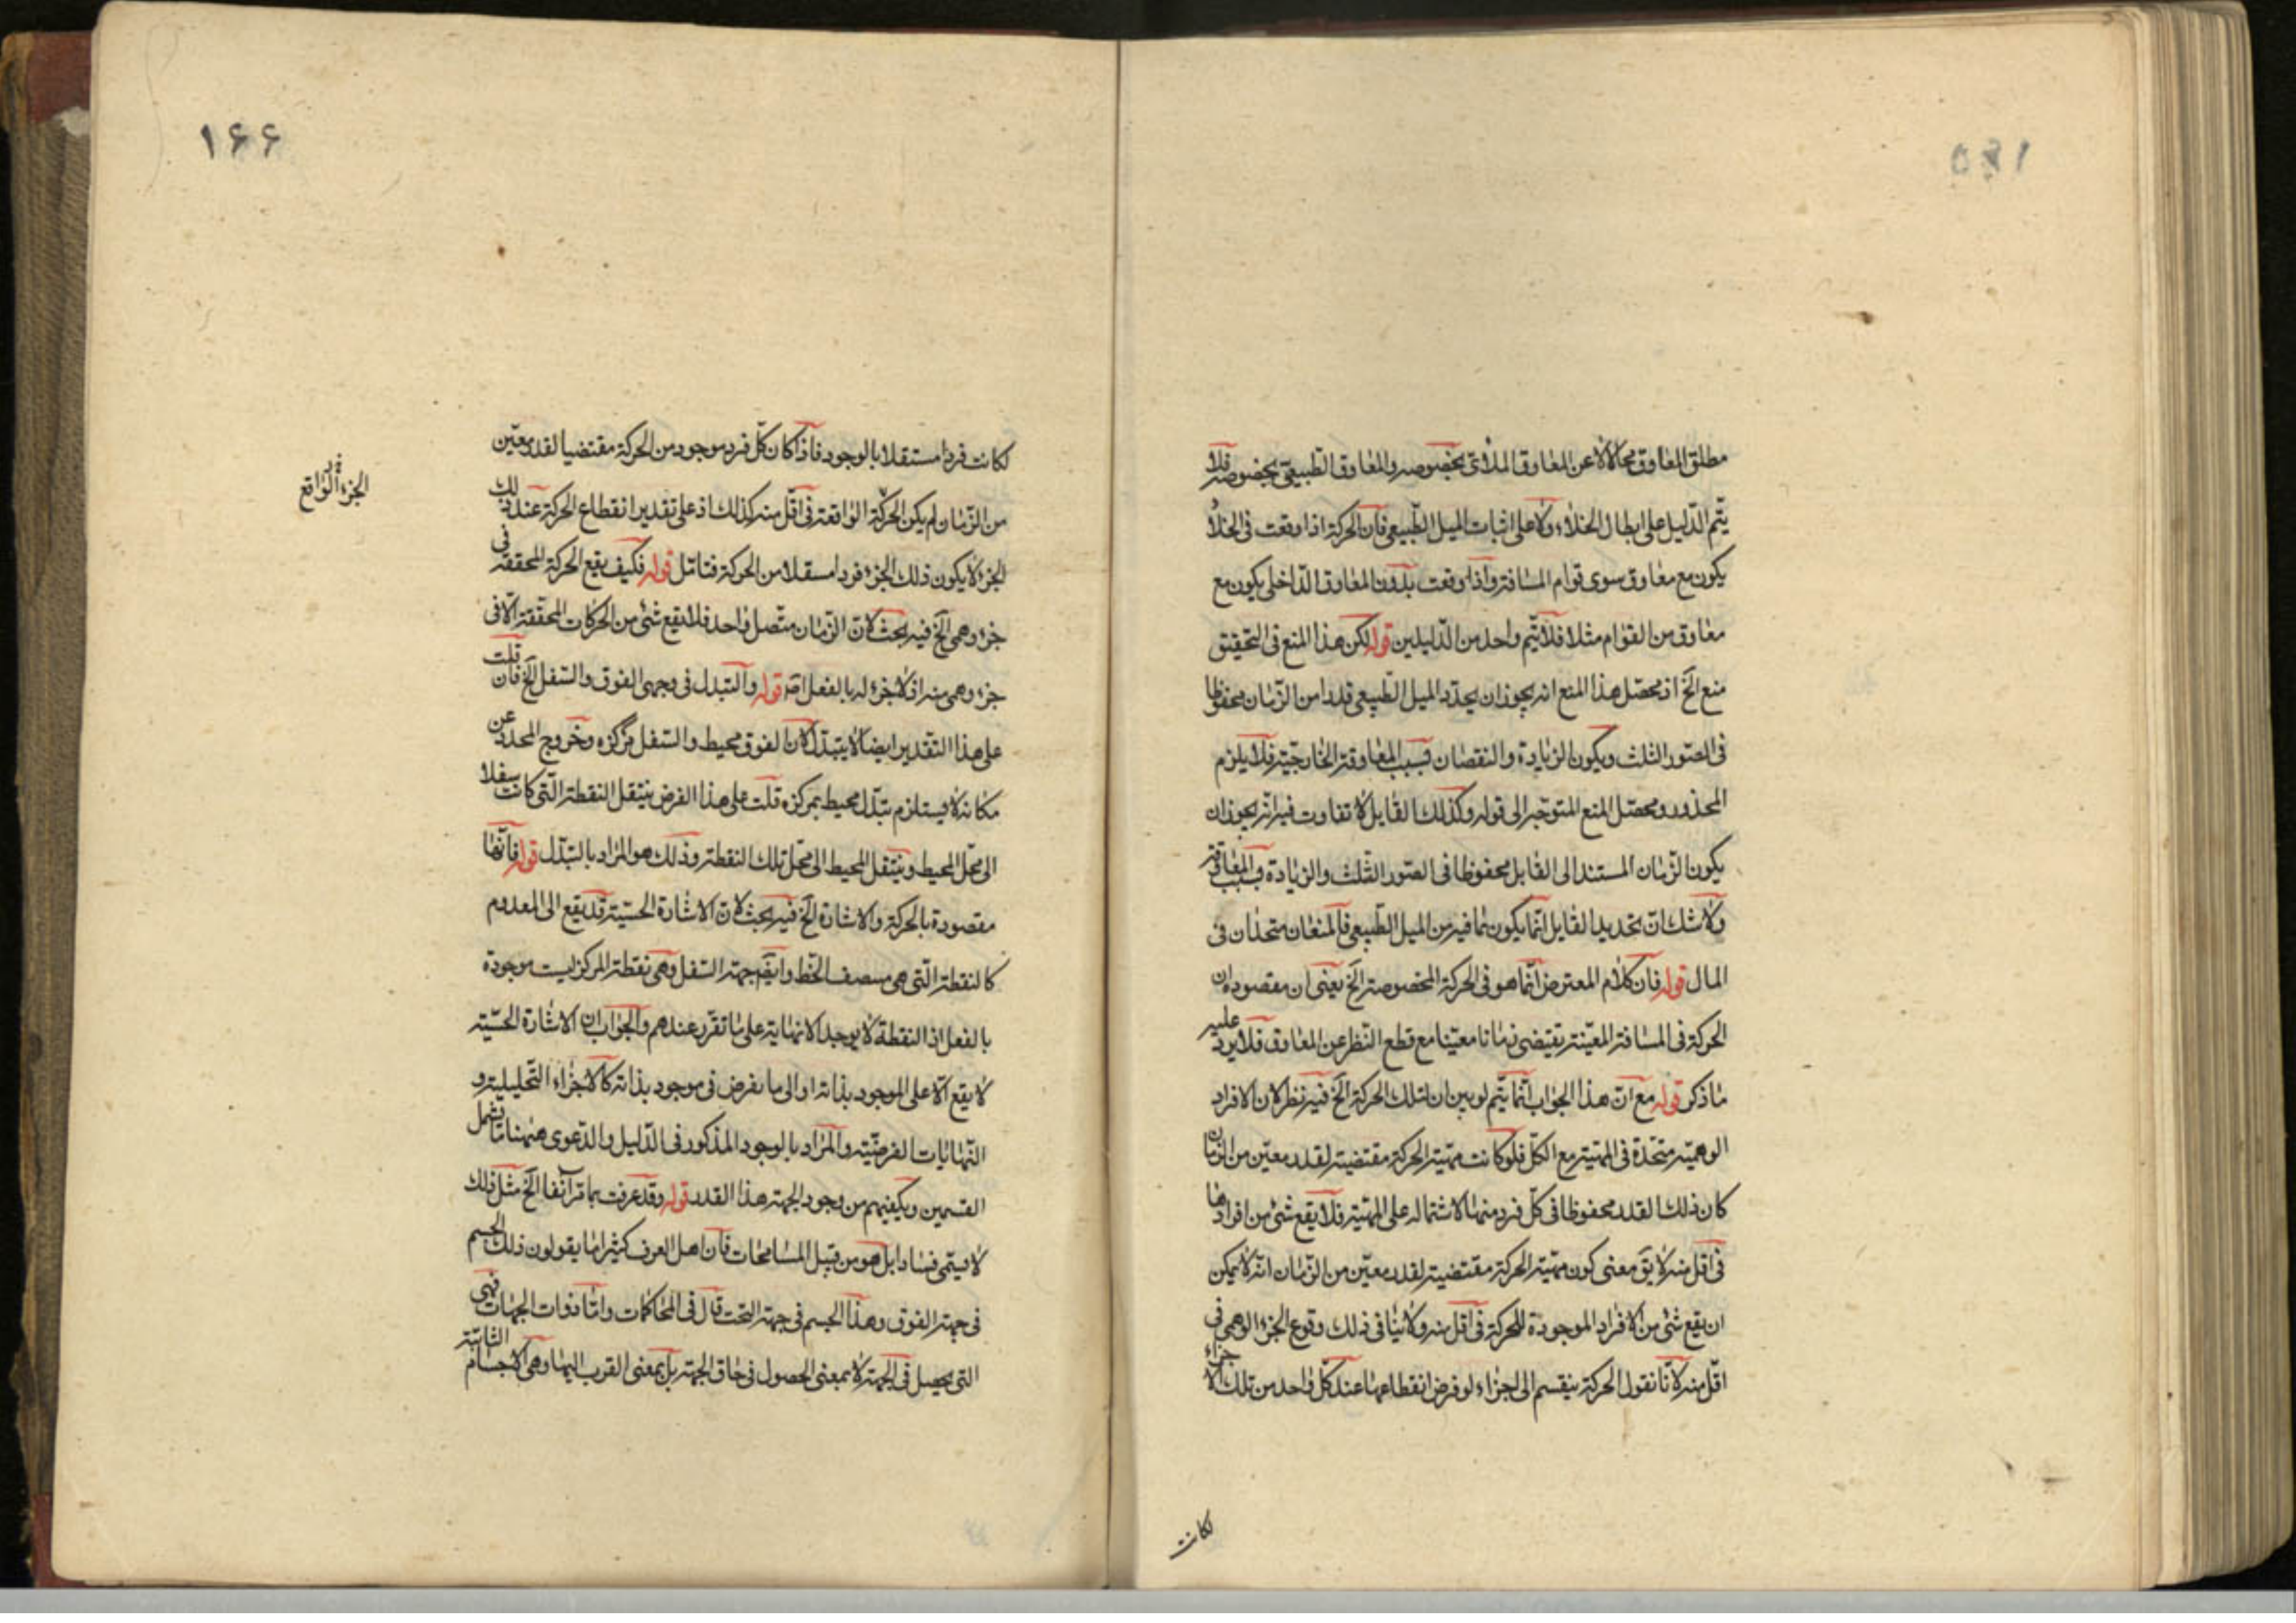 مطلق المعاوق محالا لا عن المعاوق الملاقى بخصوصه والمعاوق الطبيعى بخصوصه فلا
يتم الدليل على ابطال الخلاء ولا على اثبات الميل الطبيعى فان الحركة اذا وقعت فى الخلاء
يكون مع معاوق سوى قوام المسافة واذا وقعت بدون المعاوق الداخلى يكون مع
معاوق من القوام مثلا فلا يتم واحد من الدليلين قوله لكن هذا المنع فى التحقيق
منع الخ اذ محصل هذا المنع انه يجوز ان يحدد الميل الطبيعى قدرا من الزمان محفوظا
فى الصور الثلث ويكون الزيادة والنقصان بسبب المعاوقة الخارجية فلا يلزم
المحذور ومحصل المنع المتوجه الى قوله وكذلك القابل لا تفاوت فيه انه يجوز ان
يكون الزمان المستند الى القابل محفوظا فى الصور الثلث والزيادة بسبب المعاوقة
ولا شك ان تحديد القابل انما يكون بما فيه من الميل الطبيعى فالمنعان متحدان فى
المال قوله فان كلام المعترض انما هو فى الحركة المخصوصة الخ يعنى ان مقصوده ان
الحركة فى المسافة المعينة يقتضى زمانا معينا مع قطع النظر عن المعاوق فلا يرد عليه
ما ذكر قوله مع ان هذا الجواب انما يتم لو بين ان لتلك الحركة الخ فيه نظر لان الافراد
الوهمية متحدة فى المهية مع الكل فلو كانت مهية الحركة مقتضية لقدر معين من الزمان
كان ذلك القدر محفوظا فى كل فرد منها لاشتماله على المهية فلا يقع شئ من افرادها
فى اقل منه لا يق معنى كون مهية الحركة مقتضية لقدر معين من الزمان انه لا يمكن
ان يقع شئ من الافراد الموجودة للحركة فى اقل منه ولا ينافى ذلك وقوع الجزء الوهمى فى
اقل منه لانا نقول الحركة ينقسم الى اجزاء لو فرض انقطاعها عند كل واحد من تلك الاجزاء
لكانت
١۶۶
لكانت فردا مستقلا بالوجود فاذا كان كل فرد موجود من الحركة مقتضيا لقدر معين
من الزمان لم يكن الحركة الواقعة فى اقل منه كذلك اذ على تقدير انقطاع الحركة عند ذلك
الجزء لا يكون ذلك الجزء فردا مسقلا من الحركة فتامل قوله فكيف يقع الحركة المحققة فى
جزء وهمى الخ فيه بحث لان الزمان متصل واحد فلا يقع شئ من الحركات المحققة الا فى
جزء وهمى منه اذ لا جزء له بالفعل اصلا قوله والتبدل فى وجهى الفوق والسفل الخ فان قلت
على هذا التقدير ايضا لا يتبدل لان الفوق محيط والسفل مركزه وخروج المحدد عن
مكانه لا يستلزم تبدل محيط بمركزه قلت على هذا الفرض ينتقل النقطة التى كانت سفلا
الى محل المحيط وينتقل المحيط الى محل تلك النقطة وذلك هو المراد بالتبدل قوله فانها
مقصودة بالحركة والاشارة الخ فيه بحث لان الاشارة الحسية قد يقع الى المعدوم
كالنقطة التى هى منصف الخط وايضا جهة السفل وهى نقطة المركز ليست موجودة
بالفعل اذ النقطة لا يوجد الا نهاية على ما تقرر عندهم والجواب ان الاشارة الحسية
لا يقع الا على الموجود بذاته او الى ما يفرض فى موجود بذاته كالاجزاء التحليلية و
النهايات الفرضية والمراد بالوجود المذكور فى الدليل والدعوى ههنا ما يشمل
القسمين ويكفيهم من وجود الجهة هذا القدر قوله وقد عرفت بما مر آنفا الخ مثل ذلك
لا يسمى فسادا بل هو من قبيل المسامحات فان اهل العرف كثيرا ما يقولون ذلك الجسم
فى جهة الفوق وهذا الجسم فى جهة التحت قال فى المحاكمات واما ذوات الجهات فهى
التى يحصل فى الجهة لا بمعنى الحصول فى حاق الجهة بل بمعنى القرب اليها وهى الاجسام
الجزء الواقع